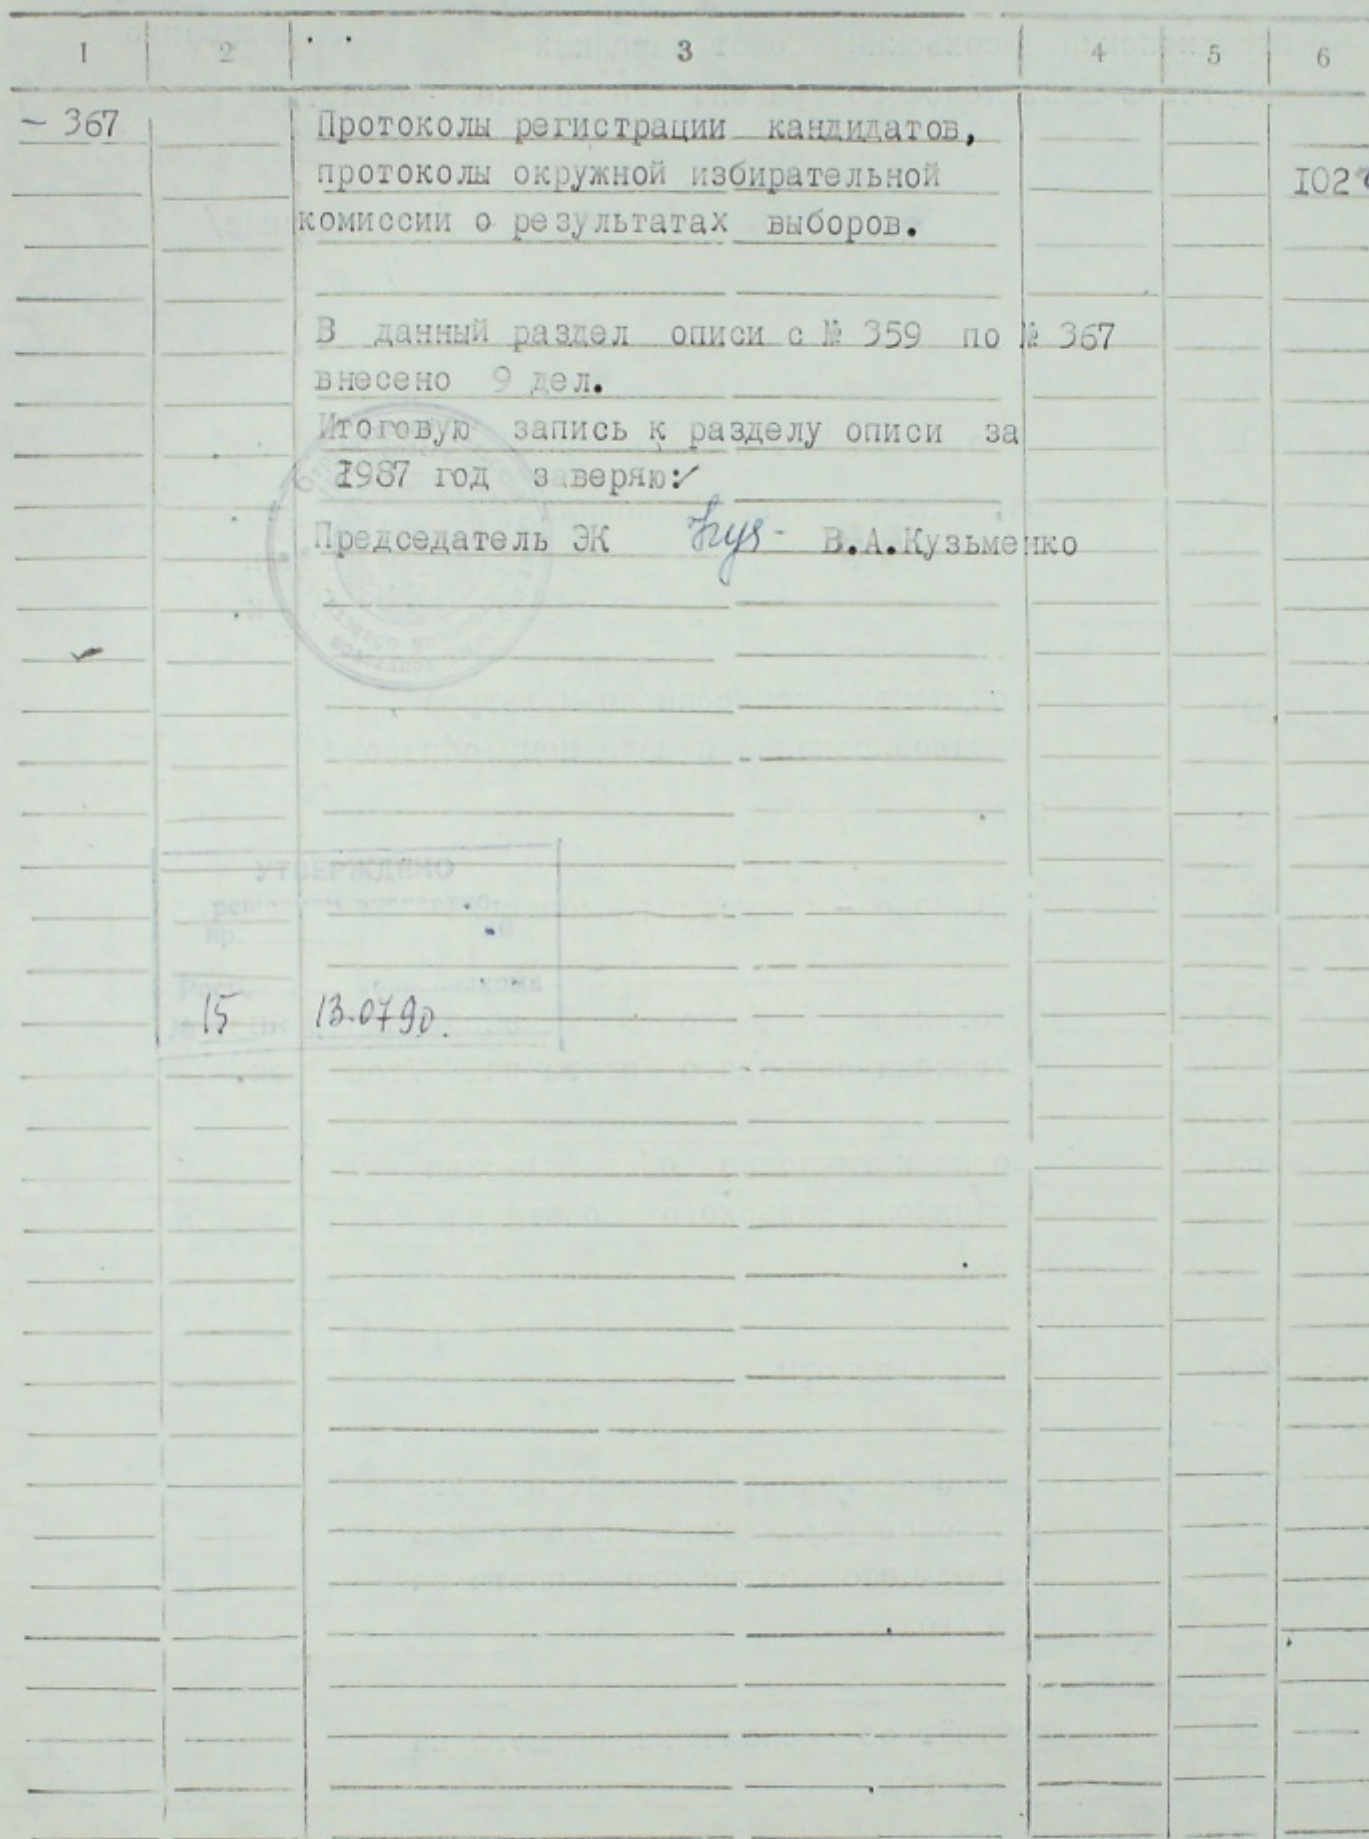 I 2 3 4 5 6
- 367 Протоколы регистрации кандидатов,
протоколы окружной избирательной
комиссии о результатах выборов.
В данный раздел описи с № 359 по № 367
внесено 9 дел.
Итоговую запись к разделу описи за
1987 год заверяю:
Председатель ЭК В.А.Кузьменко
УТВЕРЖДЕНО
15 13.07.90.